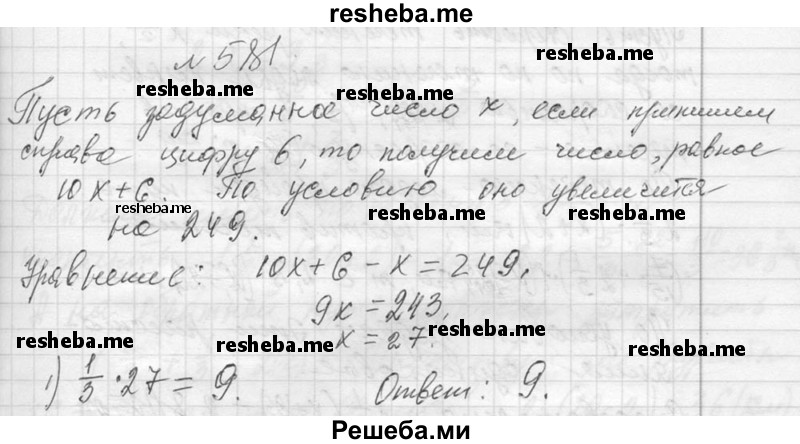 resheba.me
№ 581.
resheba.me resheba.me
Пусть задуманное число x, если припишем
справа цифру 6, то получим число, равное
10x+6. По условию оно увеличится
resheba.me resheba.me resheba.me
на 249.
Уравнение: 10x+6-x=249,
9x=243,
resheba.me resheba.me resheba.me
x=27.
1) 1/3 · 27 = 9. Ответ: 9.
Решеба.ми